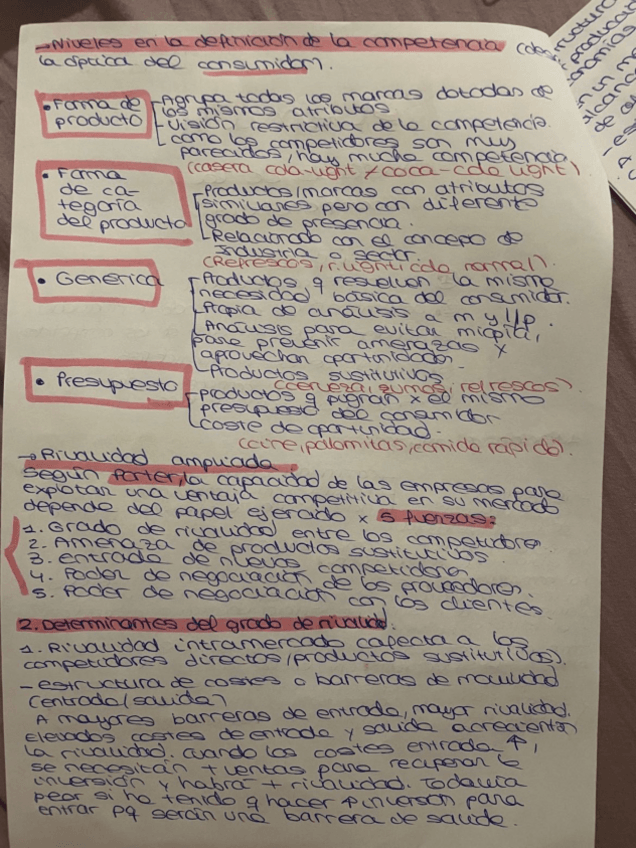 →Niveles en la definición de la competencia (desde
la óptica del consumidor).
• Forma de producto
- Agrupa todas las marcas dotadas de
los mismos atributos
- Visión restrictiva de la competencia.
como los competidores son muy
parecidos, hay mucha competencia
(casera cola-light ≠ coca-cola light).
• Forma de ca-
tegoría
del producto
- Productos/marcas con atributos
similares pero con diferente
grado de presencia.
- Relacionado con el concepo de
industria o sector.
(Refrescos, r. light, cola normal).
• Genérica
- Productos q resuelven la misma
necesidad básica del consumidor.
- Propia de análisis a m y l/p.
- Análisis para evitar miopía,
para prevenir amenazas y
aprovechar oportunidades
- Productos sustitutivos
(cerveza, zumos, refrescos).
• Presupuesto
- productos q pugnan x el mismo
presupuesto del consumidor
- coste de oportunidad.
(cine, palomitas, comida rápida).
→ Rivalidad ampliada.
Según Porter, la capacidad de las empresas para
explotar una ventaja competitiva en su mercado
depende del papel ejercido x 5 fuerzas:
1. Grado de rivalidad entre los competidores
2. Amenaza de productos sustitutivos
3. entrada de nuevos competidores.
4. Poder de negociación de los proveedores.
5. Poder de negociación con los clientes
2. Determinantes del grado de rivalidad.
1. Rivalidad intramercado (afecta a los
competidores directos/productos sustitutivos).
- estructura de costes o barreras de movilidad
(entrada/salida)
A mayores barreras de entrada, mayor rivalidad.
elevados costes de entrada y salida acrecientan
la rivalidad. cuando los costes entrada ↑,
se necesitan + ventas para recuperar la
inversión y habrá + rivalidad. Todavía
peor si ha tenido q hacer ↑ inversón para
entrar pq serían una barrera de salida.